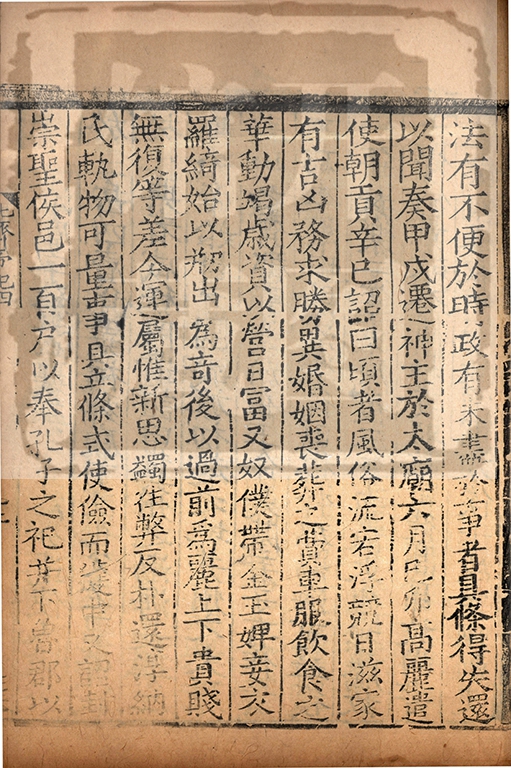 法有不便於時政有未盡於事者具條得失還
以聞奏甲戌遷神主於太廟六月己卯高麗遣
使朝貢辛巳詔曰頃者風俗流宕浮競日滋家
有吉凶務求勝異婚姻喪葬之費車服飲食之
華動竭歲資以營日富又奴僕帶金玉婢妾衣
羅綺始以剏出為奇後以過前為麗上下貴賤
無復等差今運屬惟新思蠲往弊反朴還淳納
民軌物可量事具立條式使儉而獲中又詔封
崇聖侯邑一百戶以奉孔子之祀并下魯郡以